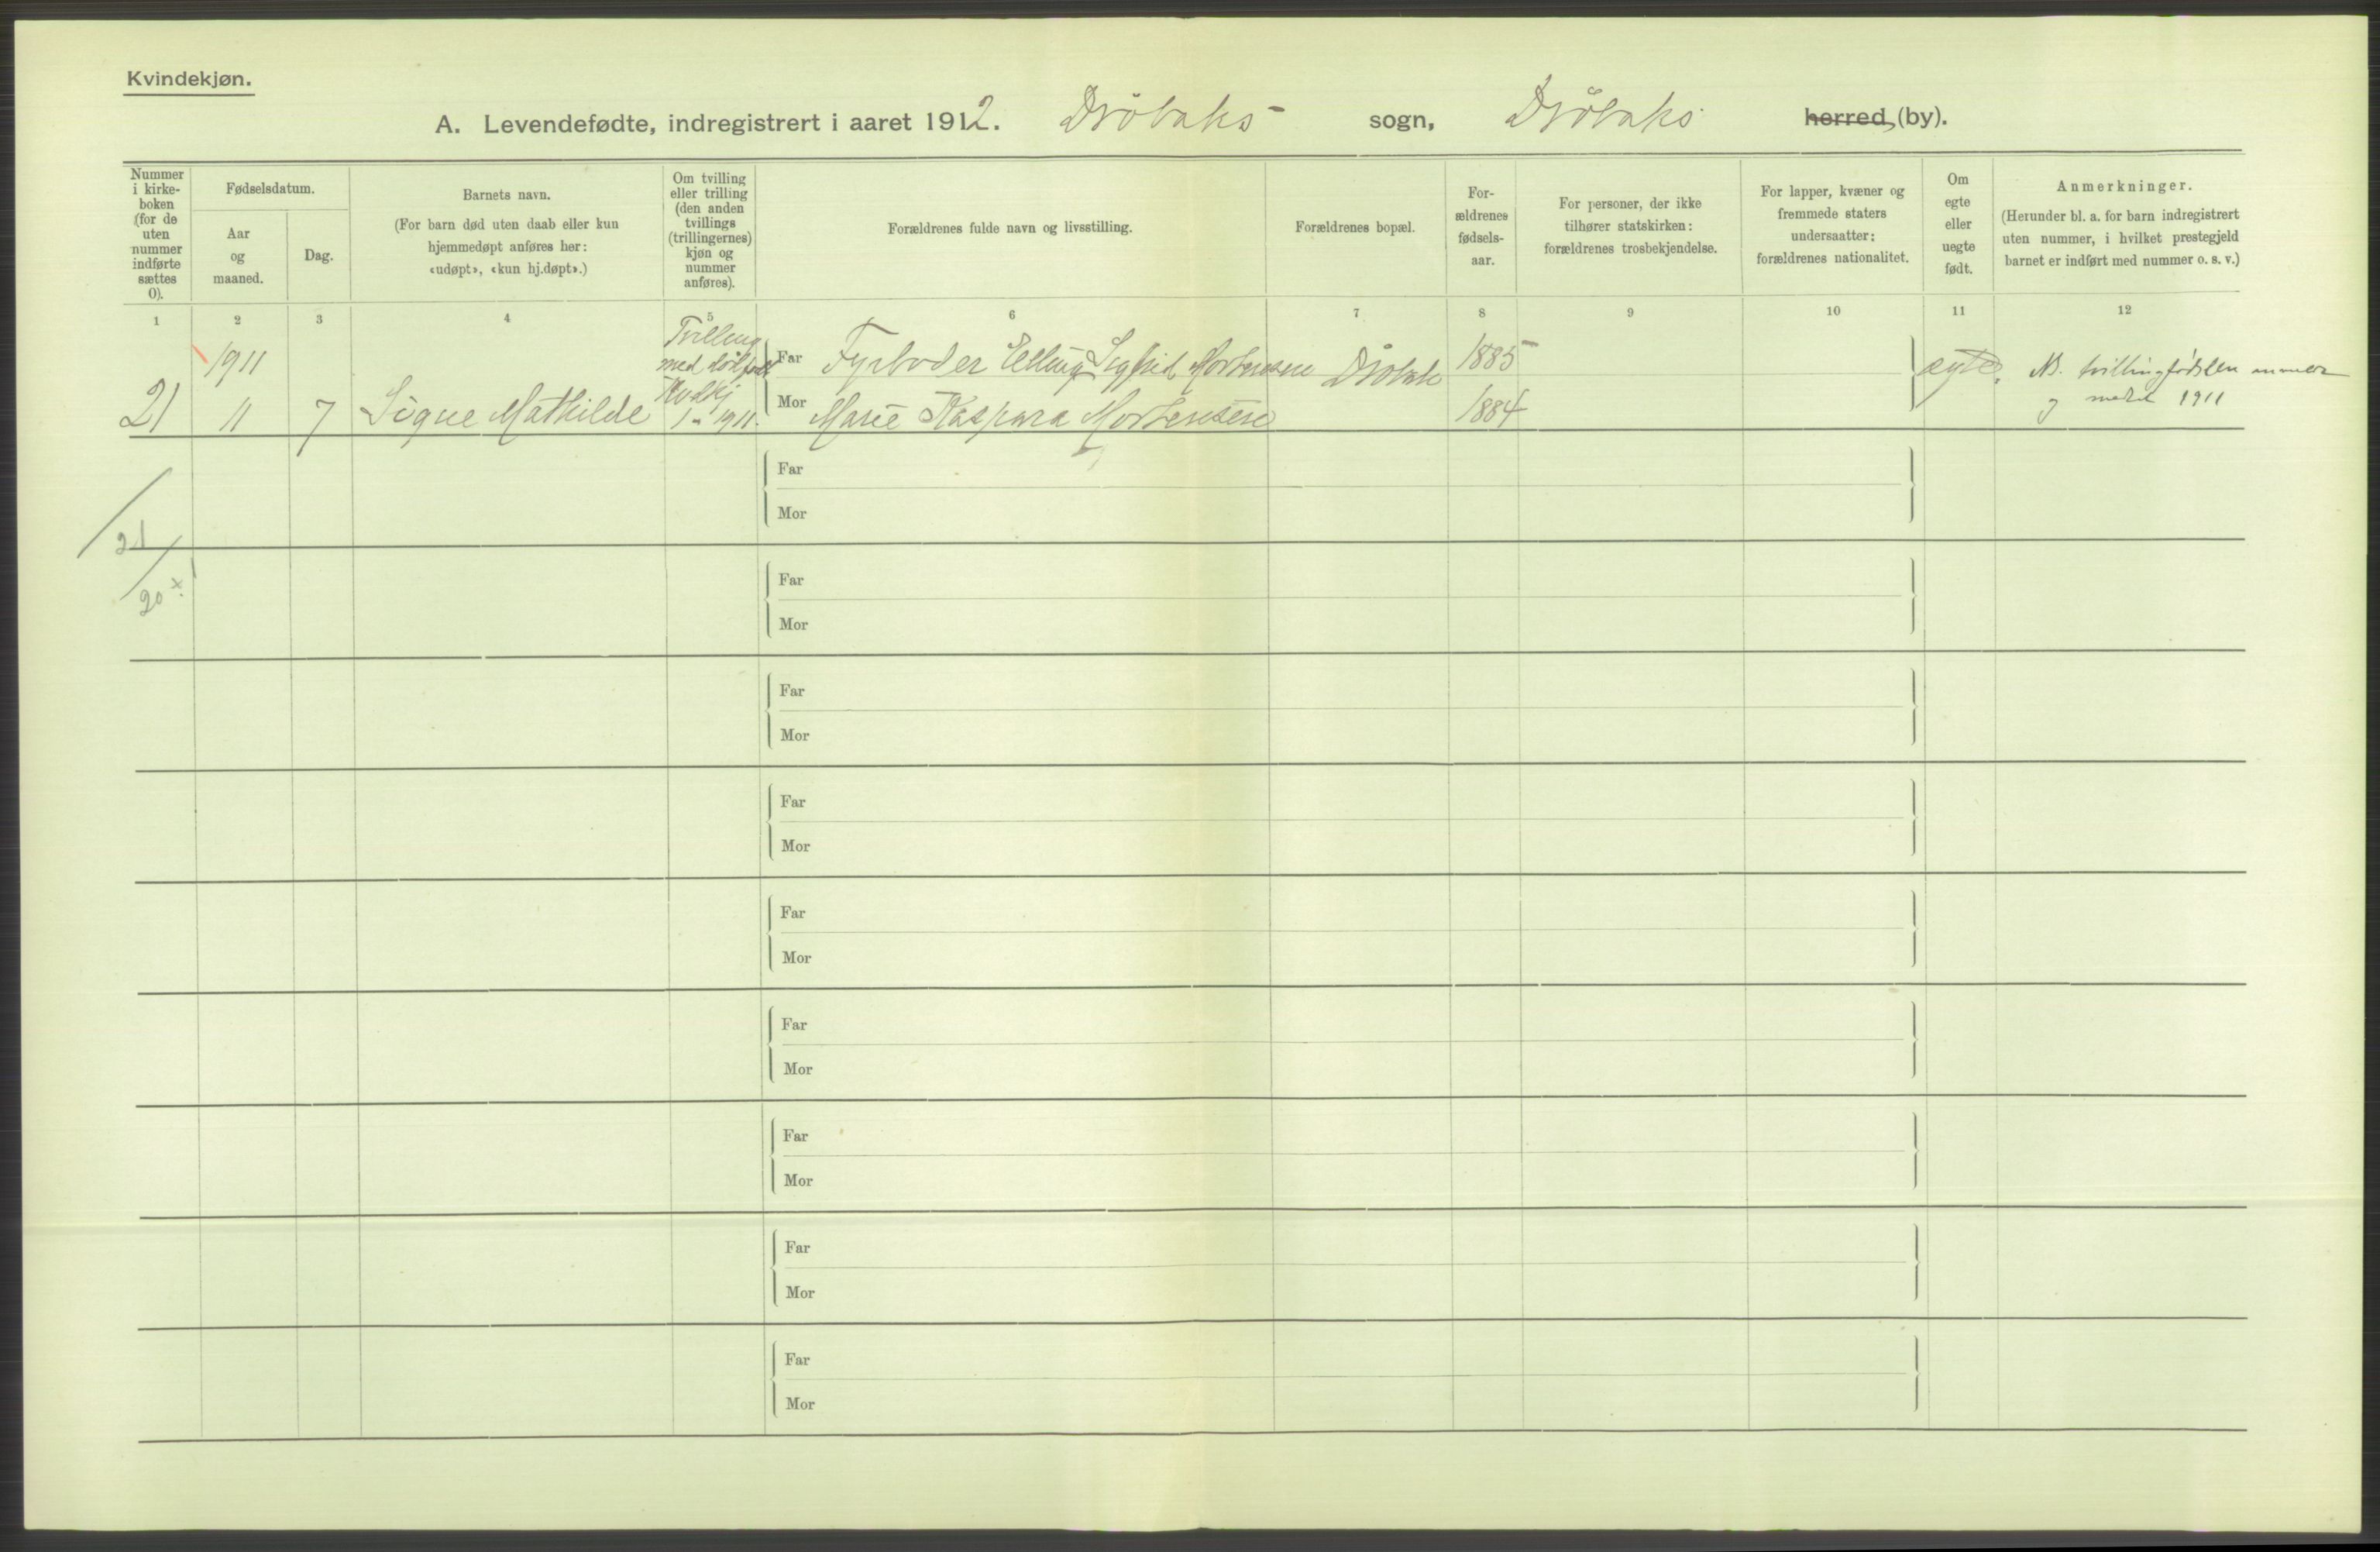 Kvindekjøn.
A. Levendefødte, indregistrert i aaret 1912. Dröbaks sogn, Dröbaks herred (by).
Nummer i kirke- boken (for de uten nummer indførte sættes 0).
Fødselsdatum.
Aar og maaned.
Dag.
Barnets navn.
(For barn død uten daab eller kun hjemmedøpt anføres her: «udøpt», «kun hj.døpt».)
Om tvilling eller trilling (den anden tvillings (trillingernes) kjøn og nummer anføres).
Forældrenes fulde navn og livsstilling.
Forældrenes bopæl.
For- ældrenes fødsels- aar.
For personer, der ikke tilhører statskirken: forældrenes trosbekjendelse.
For lapper, kvæner og fremmede staters undersaatter: forældrenes nationalitet.
Om egte eller uegte født.
Anmerkninger.
(Herunder bl. a. for barn indregistrert uten nummer, i hvilket prestegjeld barnet er indført med nummer o. s. v.)
1 2 3 4 5 6 7 8 9 10 11 12
1911 Tvilling med dödfödt Far Fyrböder Elling Sigfrid Mortensen Dröbak 1885 egte. NB. tvillingfødslen
21 11 7 Signe Mathilde 1 - 1911. Mor Marie Kaspara Mortensen 1884 1911
Far
Mor
21
20
Far
Mor
Far
Mor
Far
Mor
Far
Mor
Far
Mor
Far
Mor
Far
Mor
Far
Mor